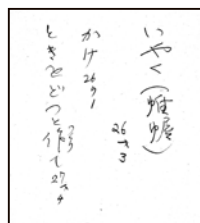 いやく(帷幄)
26ウ3
かけ26ウ1
ときをどつと作て27オ4
つくつ